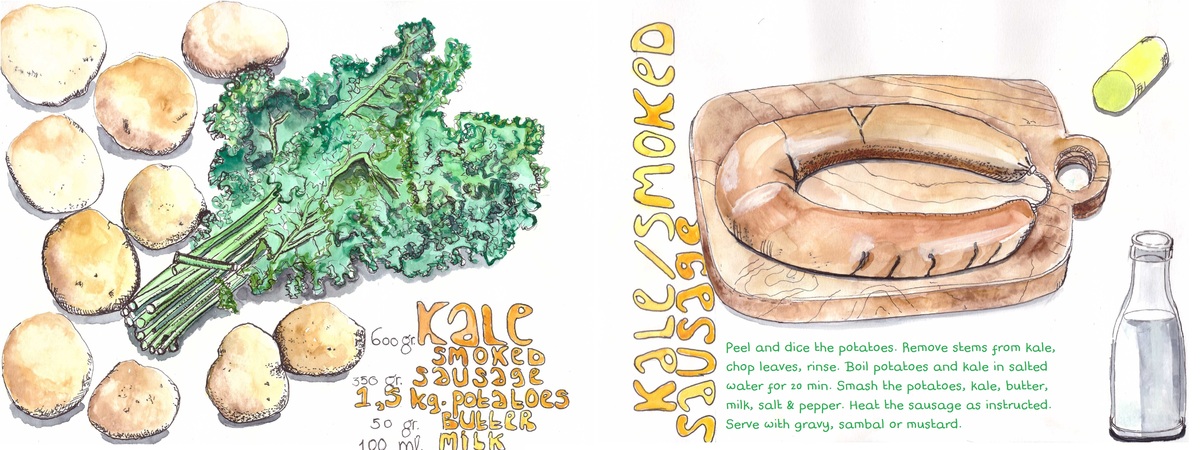 600 gr. Kale
smoked
350 gr. sausage
1,5 kg. potatoes
50 gr. butter
100 ml. milk
Kale/smoked
sausage
Peel and dice the potatoes. Remove stems from kale,
chop leaves, rinse. Boil potatoes and kale in salted
water for 20 min. Smash the potatoes, kale, butter,
milk, salt & pepper. Heat the sausage as instructed.
Serve with gravy, sambal or mustard.